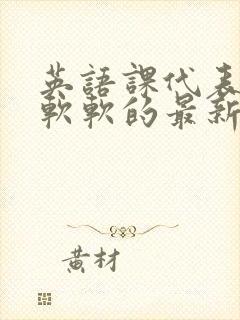 英語課代表
軟軟的最新
黃材